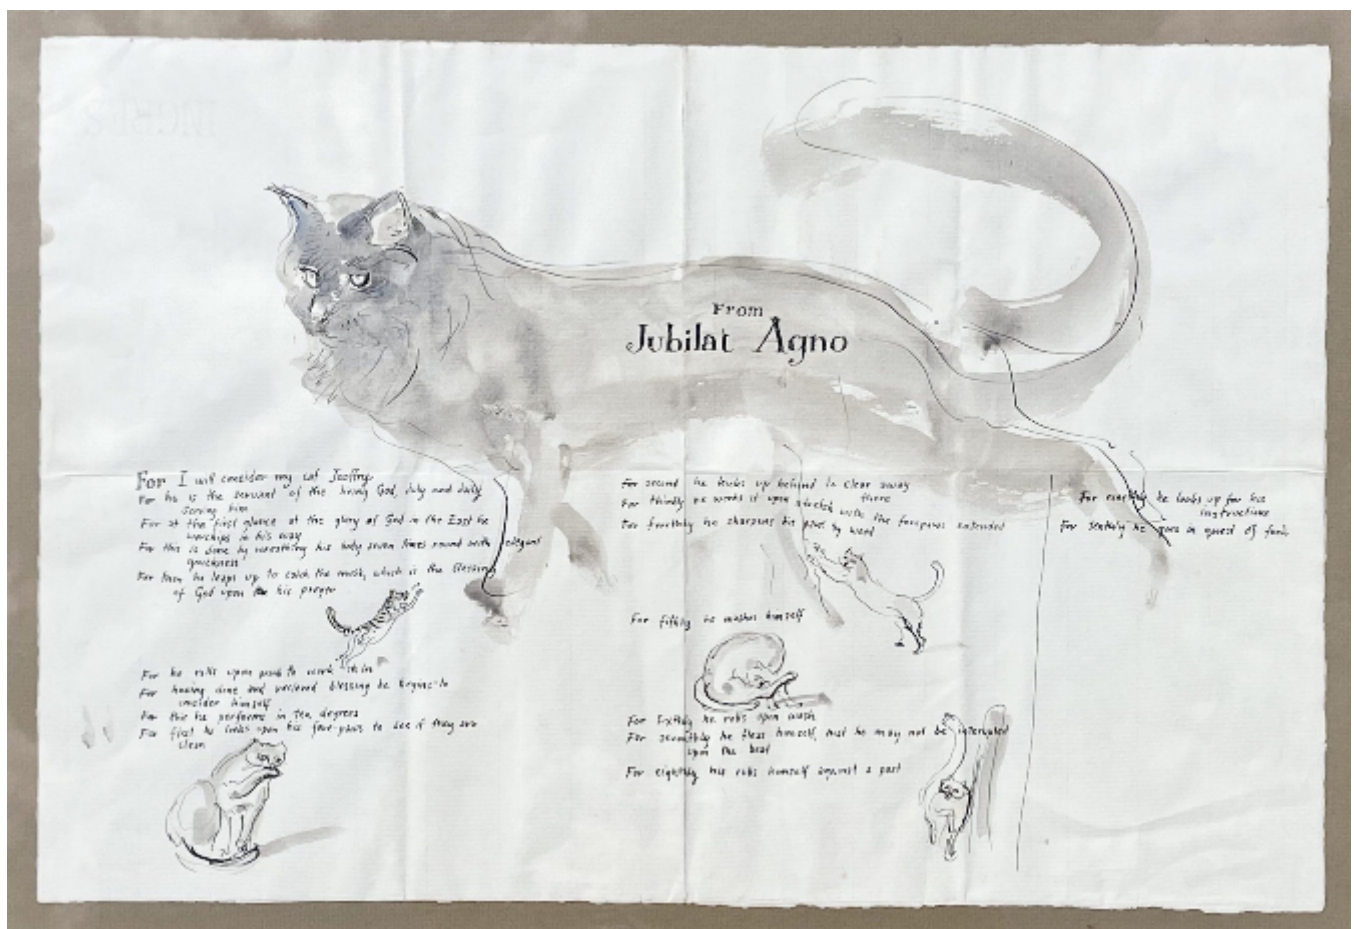 From
Jubilat Agno
For I will consider my cat Jeoffry
For he is the servant of the living God, duly and daily
serving him
For at the first glance of the glory of God in the East he
worships in his way
For this is done by wreathing his body seven times round with elegant
quickness
For then he leaps up to catch the musk, which is the blessing
of God upon his prayer
For he rolls upon prank to work it in
For having done and received blessing he begins to
consider himself
For this he performs in ten degrees
For first he looks upon his fore-paws to see if they are
clean
For second he kicks up behind to clear away
there
For thirdly he works it upon stretch with the forepaws extended
For fourthly he sharpens his paws by wood
For fifthly he washes himself
For sixthly he rolls upon wash
For seventhly he fleas himself, that he may not be interrupted
upon the beat
For eightly he rubs himself against a post
For he looks up for his
instructions
For he goes in quest of food
INGRES